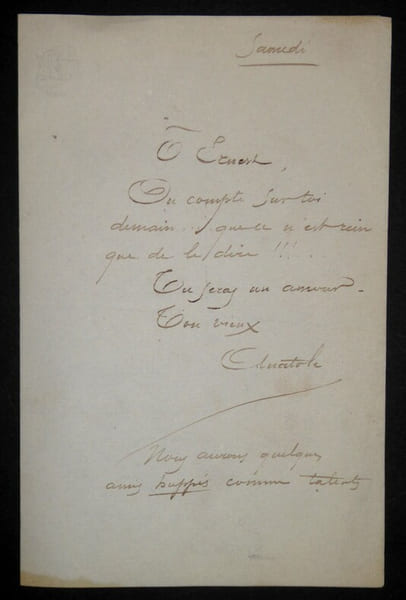 Samedi
Ô Ernest,
On compte sur toi
demain. que ce n'est rien
que de le dire !!!.
Tu seras un amour.
Ton vieux
Anatole
Nous aurons quelques
amis huppés comme talents